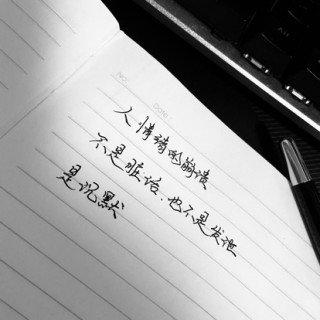 No.
Date
人情绪的崩溃
不是脏话、也不是发泄
是沉默